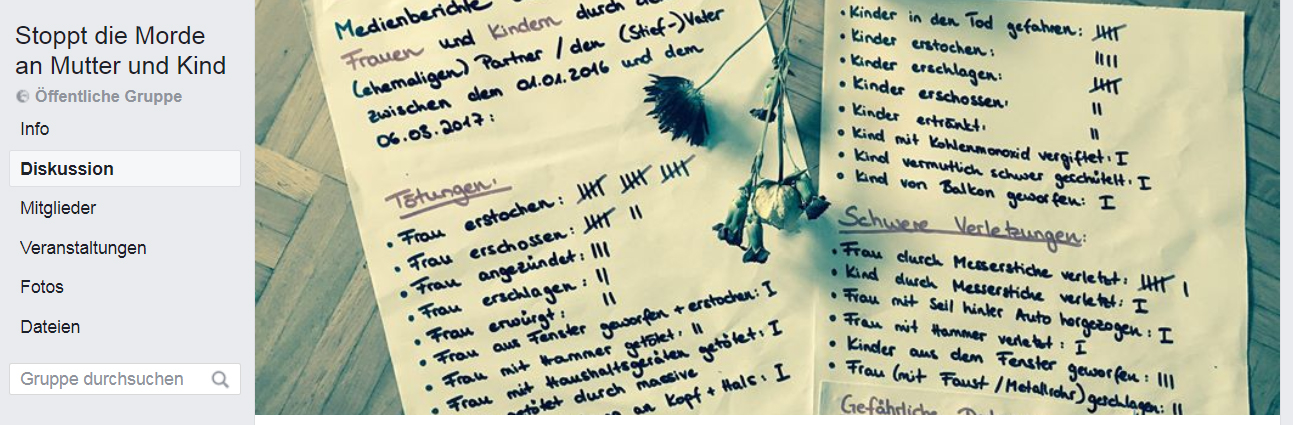 Stoppt die Morde
an Mutter und Kind
Öffentliche Gruppe
Info
Diskussion
Mitglieder
Veranstaltungen
Fotos
Dateien
Gruppe durchsuchen
Medienberichte
Frauen und Kindern durch
(ehemaligen) Partner / den (Stief-)Vater
zwischen dem 01.01.2016 und dem
06.03.2017:
Tötungen:
• Frau erstochen: 卌 卌 卌
• Frau erschossen: 卌 II
• Frau angezündet: III
• Frau erschlagen: II
• Frau erwürgt: II
• Frau aus Fenster geworfen + erstochen: I
• Frau mit Hammer getötet: II
• Frau mit Haushaltsgeräten getötet: I
getötet durch massive
an Kopf + Hals: I
• Kinder in den Tod gefahren: 卌
• Kinder erstochen: IIII
• Kinder erschlagen: 卌
• Kinder erschossen: II
• Kinder ertränkt: II
• Kind mit Kohlenmonoxid vergiftet: I
• Kind vermutlich schwer geschüttelt: I
• Kind von Balkon geworfen: I
Schwere Verletzungen:
• Frau durch Messerstiche verletzt: 卌 I
• Kind durch Messerstiche verletzt: I
• Frau mit Seil hinter Auto hergezogen: I
• Frau mit Hammer verletzt: I
• Kinder aus dem Fenster geworfen: III
• Frau (mit Faust / Metallrohr) geschlagen: II
Gefährliche